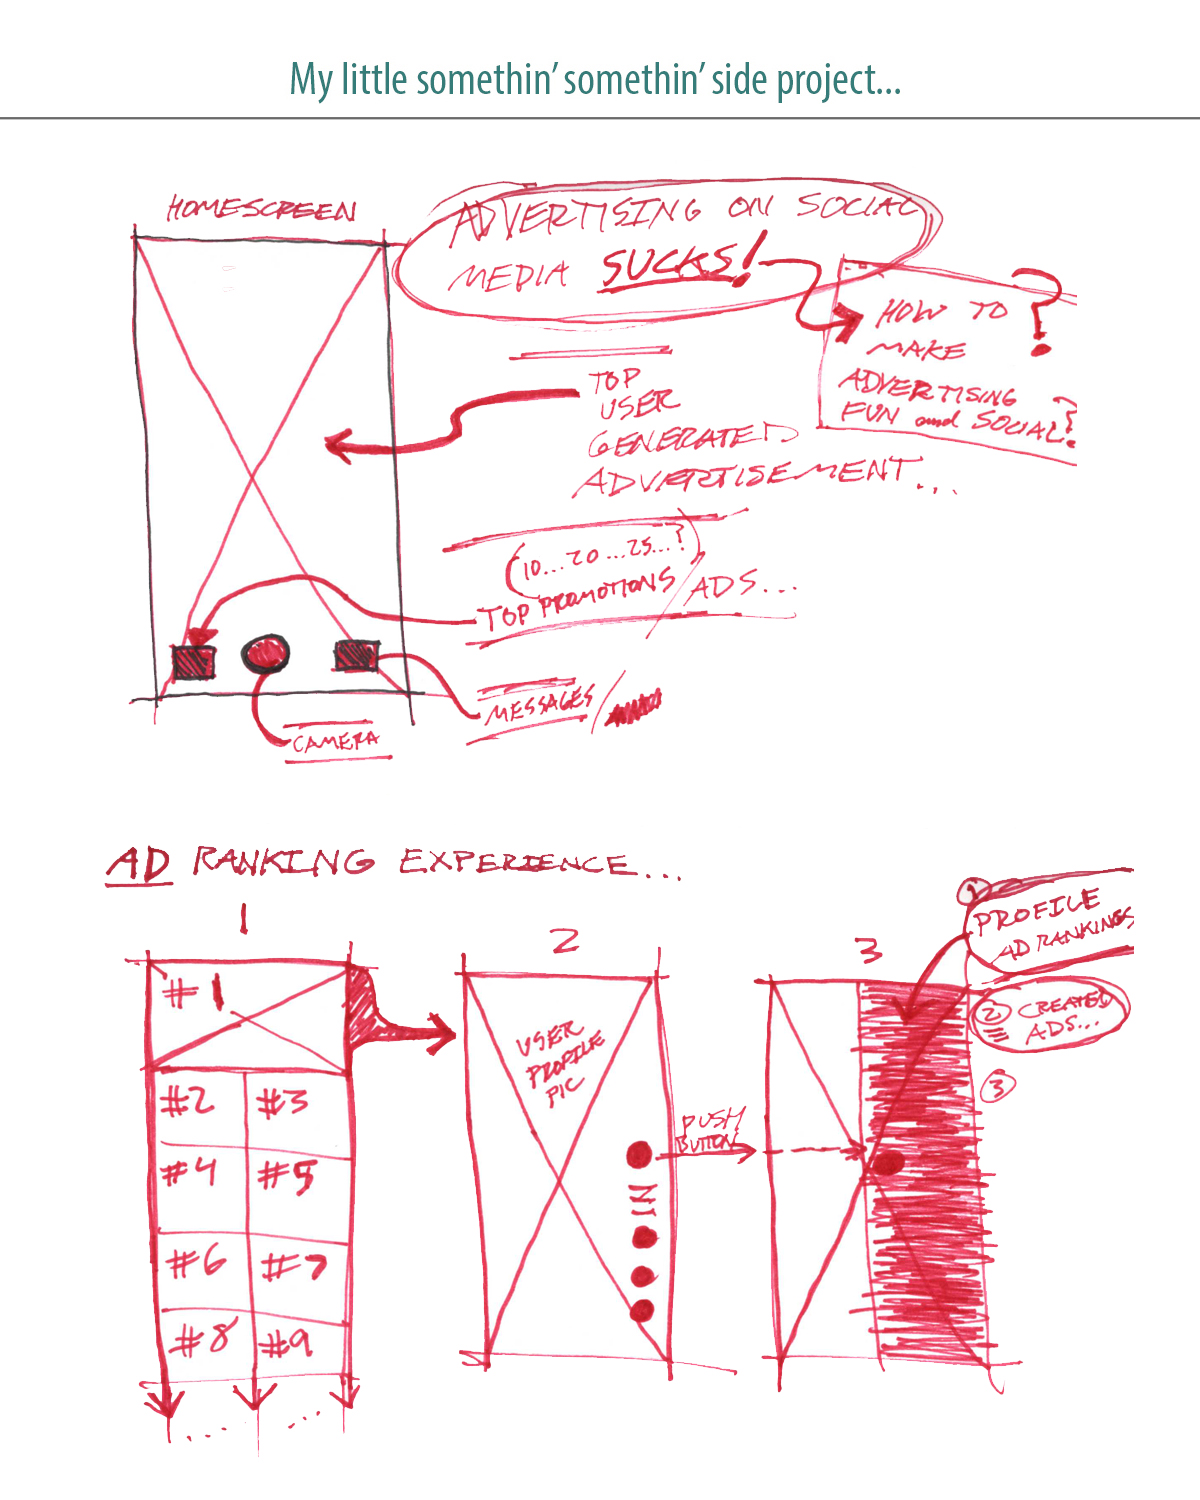 My little somethin' somethin' side project...
HOMESCREEN
ADVERTISING ON SOCIAL
MEDIA SUCKS!
HOW TO
MAKE
ADVERTISING
FUN and SOCIAL?!
?
TOP
USER
GENERATED
ADVERTISEMENT...
(10...20...25...?)
TOP PROMOTIONS / ADS...
MESSAGES /
CAMERA
AD RANKING EXPERIENCE...
1
#1
#2 #3
#4 #5
#6 #7
#8 #9
2
USER
PROFILE
PIC
PUSH
BUTTON
3
1
PROFILE
AD RANKINGS
2 CREATED
ADS...
3